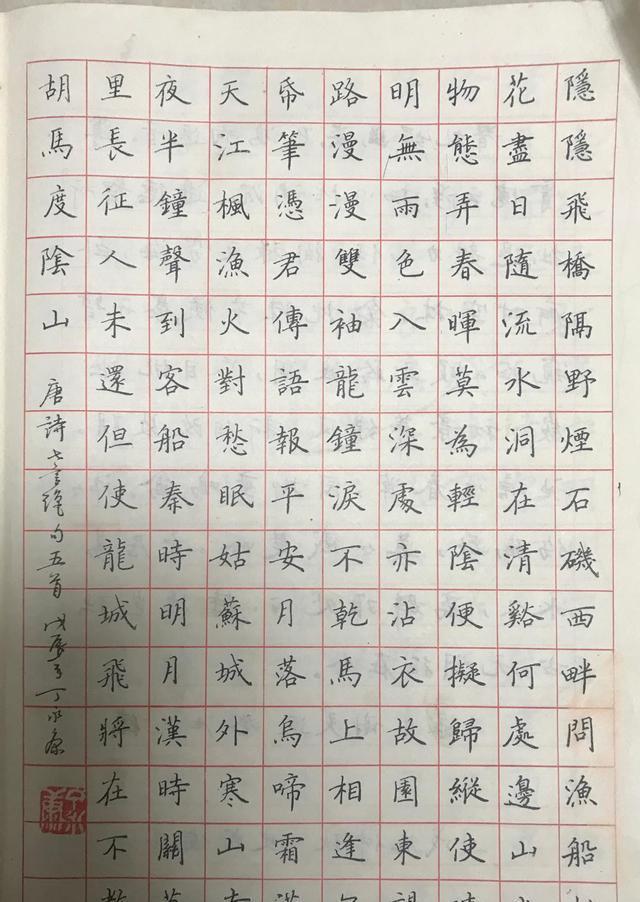 隱隱飛橋隔野煙石磯西畔問漁船
花盡日隨流水洞在清谿何處邊山
物態弄春暉莫為輕陰便擬歸縱使
明無雨色入雲深處亦沾衣故園東望
路漫漫雙袖龍鐘淚不乾馬上相逢
帋筆憑君傳語報平安月落烏啼霜滿
天江楓漁火對愁眠姑蘇城外寒山
夜半鐘聲到客船秦時明月漢時關
里長征人未還但使龍城飛將在不教
胡馬度陰山
唐詩七言絕句五首 戊辰 丁永康